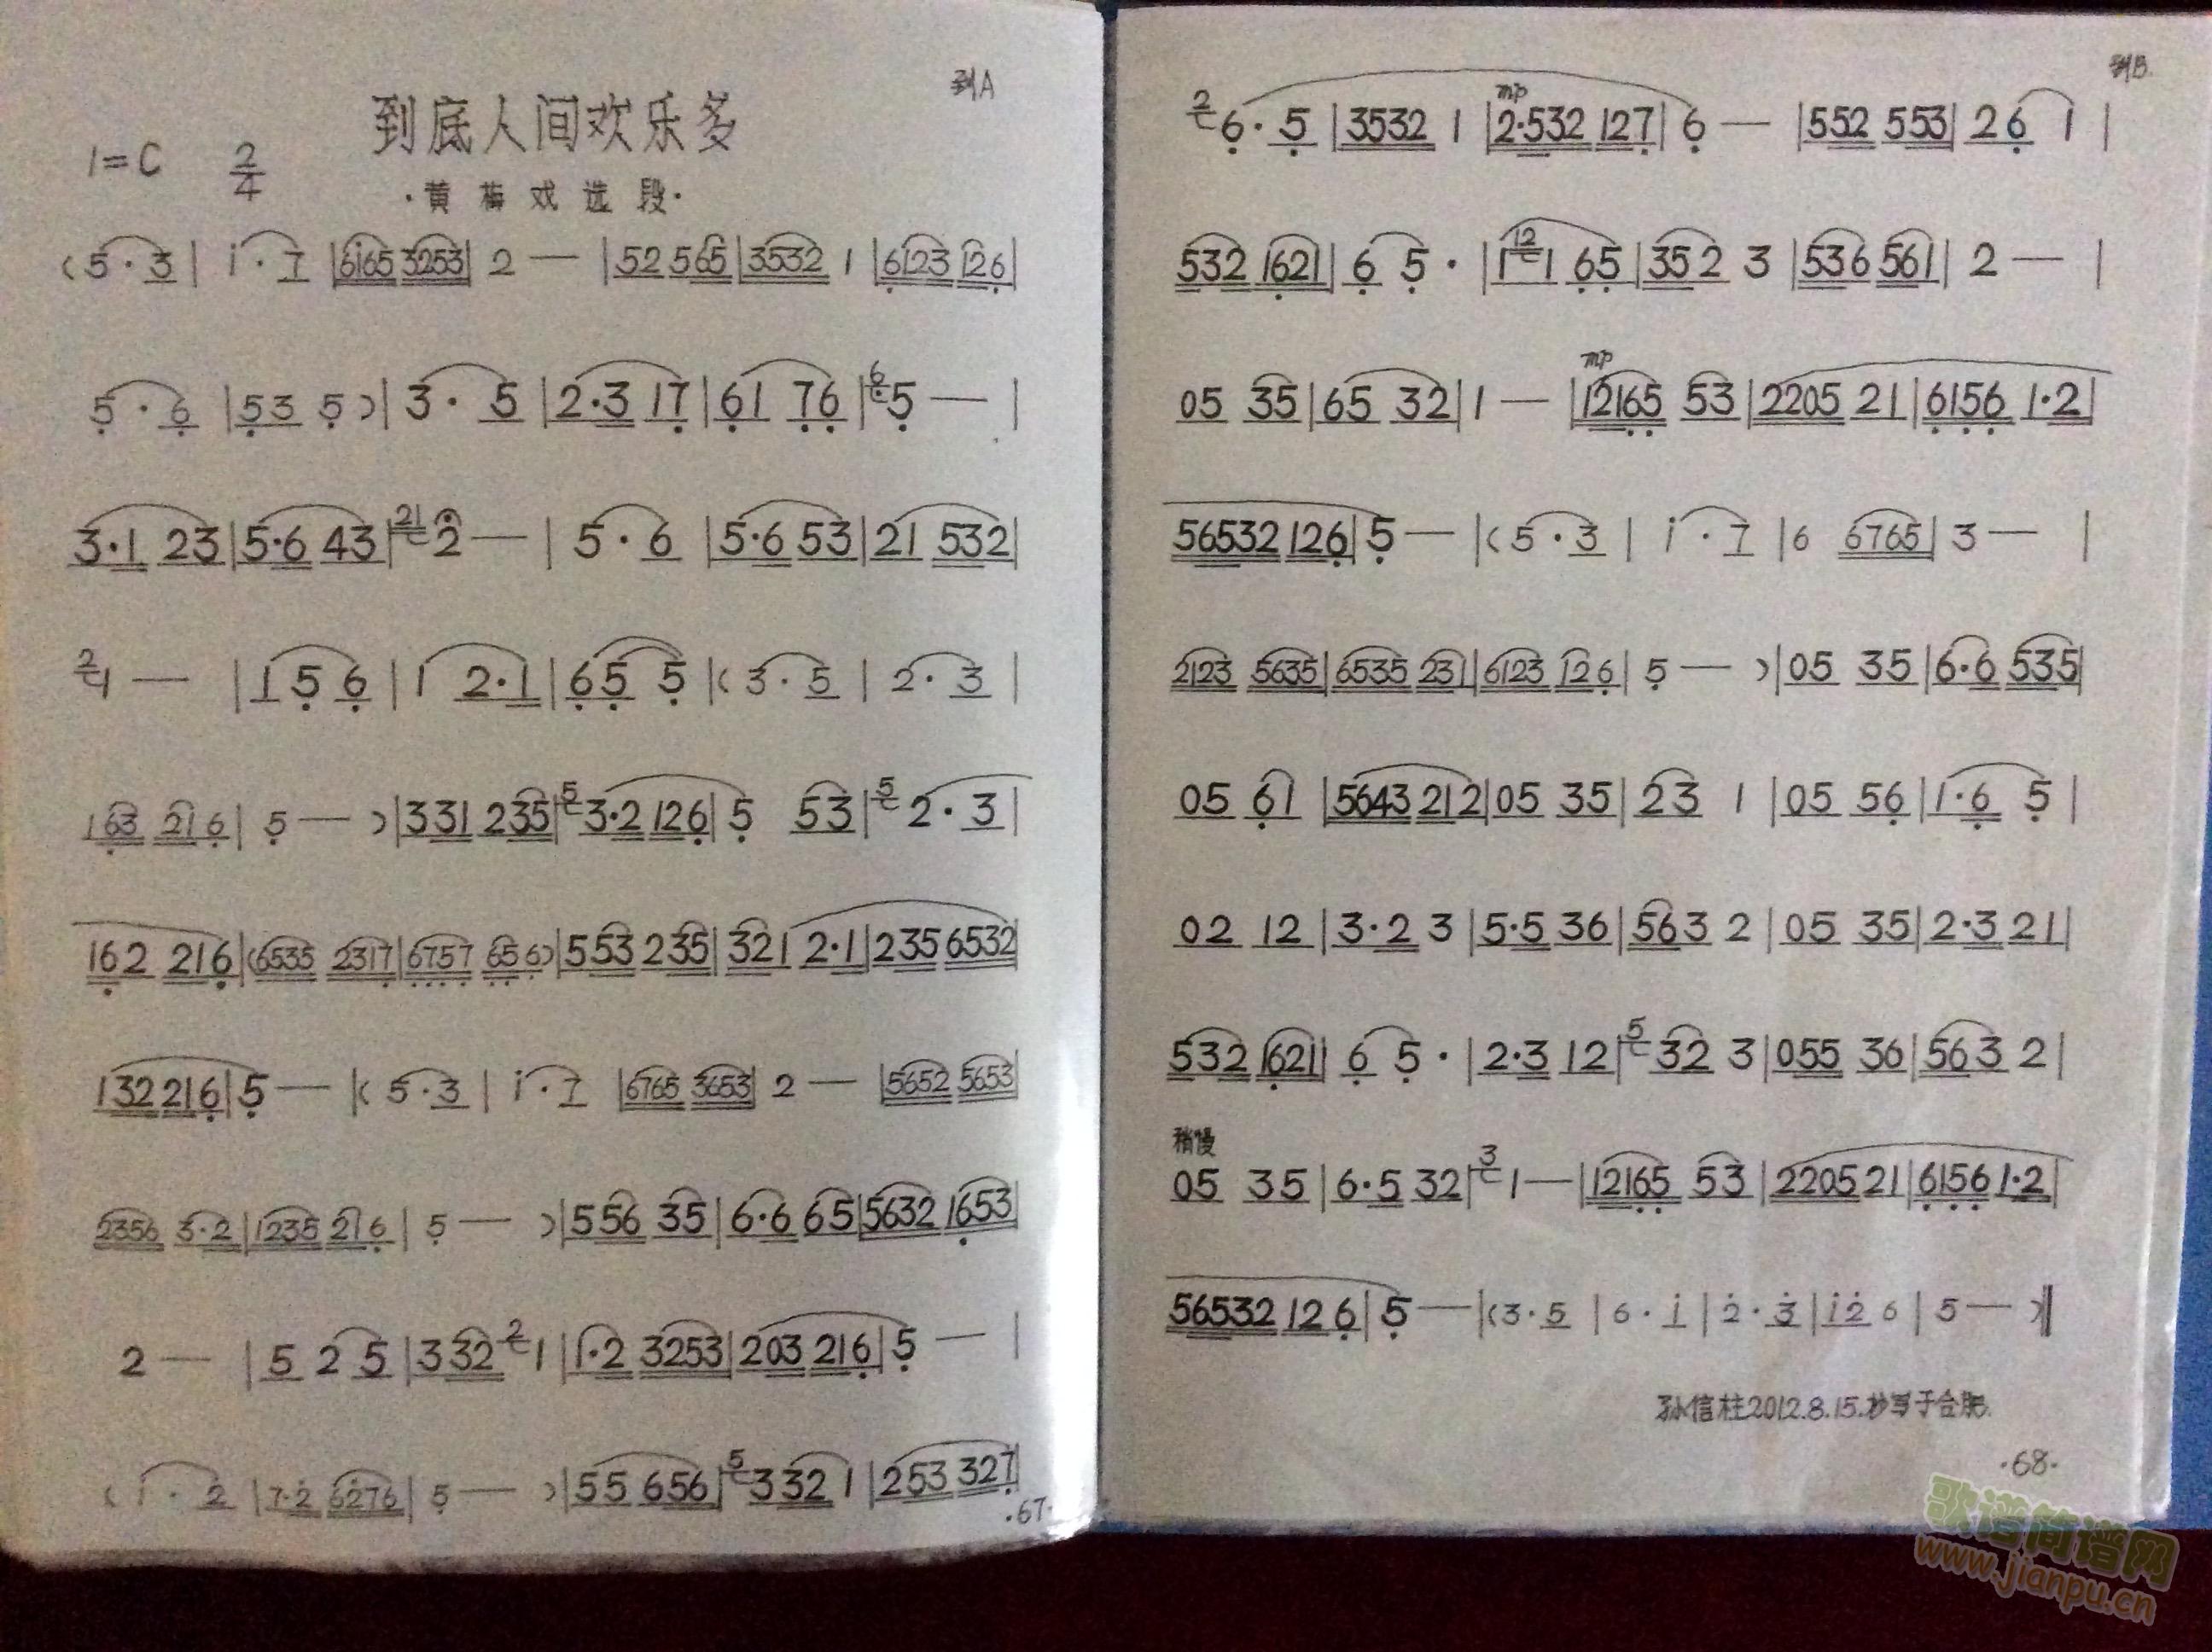 到A
到底人间欢乐多
1=C 2/4
·黄梅戏选段·
(5·3|i·7|6i65 3253|2—|52 565|3532 1|6123 126|
5·6|53 5)|3·5|2·3 17|61 76|6 5—|
3·1 23|5·6 43|21 2—|5·6|5·6 53|21 532|
2 1—|1 5 6|1 2·1|65 5|(3·5|2·3|
163 216|5—)|331 235|5 3·2 126|5 53|5 2·3|
162 216|(6535 2317|6757 656)|553 235|321 2·1|235 6532|
132 216|5—|(5·3|i·7|6765 3653|2—|5652 5653|
2356 3·2|1235 216|5—)|556 35|6·6 65|5632 1653|
2—|5 2 5|332 2 1|1·2 3253|203 216|5—|
(i·2|7·2 6276|5—)|55 656|5 332 1|253 327|
·67·
到B
2 6·5|3532 1|mp 2·532 127|6—|552 553|26 1|
532 1621|6 5·|1 12 1 65|352 3|536 561|2—|
05 35|65 32|1—|mp 12165 53|2205 21|6156 1·2|
56532 126|5—|(5·3|i·7|6 6765|3—|
2123 5635|6535 231|6123 126|5—)|05 35|6·6 535|
05 61|5643 212|05 35|23 1|05 56|1·6 5|
02 12|3·2 3|5·5 36|563 2|05 35|2·3 21|
532 1621|6 5·|2·3 12|5 32 3|055 36|563 2|
稍慢
05 35|6·5 32|3 1—|12165 53|2205 21|6156 1·2|
56532 126|5—|(3·5|6·i|2̇·3̇|i2̇ 6|5—)‖
孙信柱2012.8.15.抄写于合肥.
·68·
歌谱简谱网
www.jianpu.cn